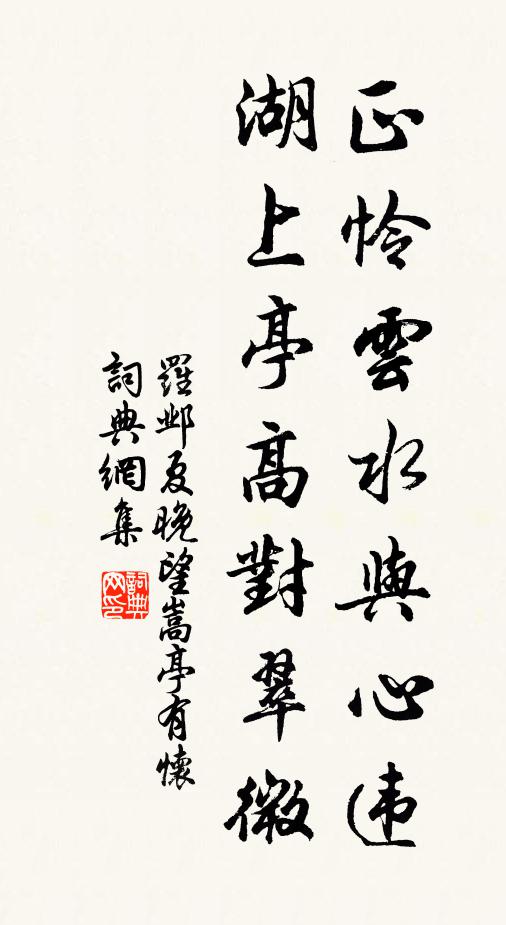 正怜雲水與心違
湖上亭高對翠微
羅鄴夏晚望嵩亭有懷
詞典網集
詞典網印